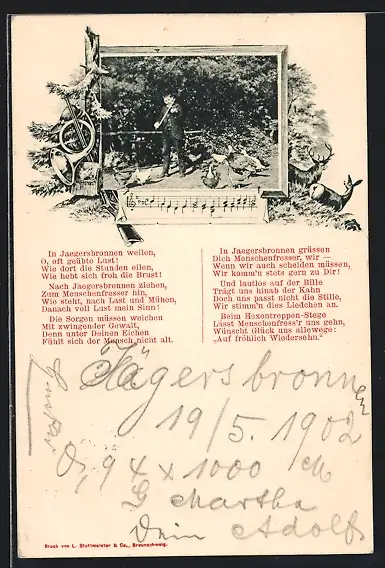 In Jaegersbronnen weilen,
O, oft geübte Lust!
Wie dort die Stunden eilen,
Wie hebt sich froh die Brust!
Nach Jaegersbronnen ziehen,
Zum Menschenfresser hin,
Wie steht, nach Last und Mühen,
Danach voll Lust mein Sinn!
Die Sorgen müssen weichen
Mit zwingender Gewalt,
Denn unter Deinen Eichen
Fühlt sich der Mensch nicht alt.
In Jaegersbronnen grüssen
Dich Menschenfresser, wir —
Wenn wir auch scheiden müssen,
Wir komm'n stets gern zu Dir!
Und lautlos auf der Bille
Trägt uns hinab der Kahn
Doch uns passt nicht die Stille,
Wir stimm'n dies Liedchen an.
Beim Hexentreppen-Stege
Lässt Menschenfress'r uns gehn,
Wünscht Glück uns allewege:
„Auf fröhlich Wiedersehn.“
Jägersbronnen
19/5. 1902
94 x 1000
Martha
Dein Adolf.
Druck von L. Stottmeister & Co., Braunschweig.